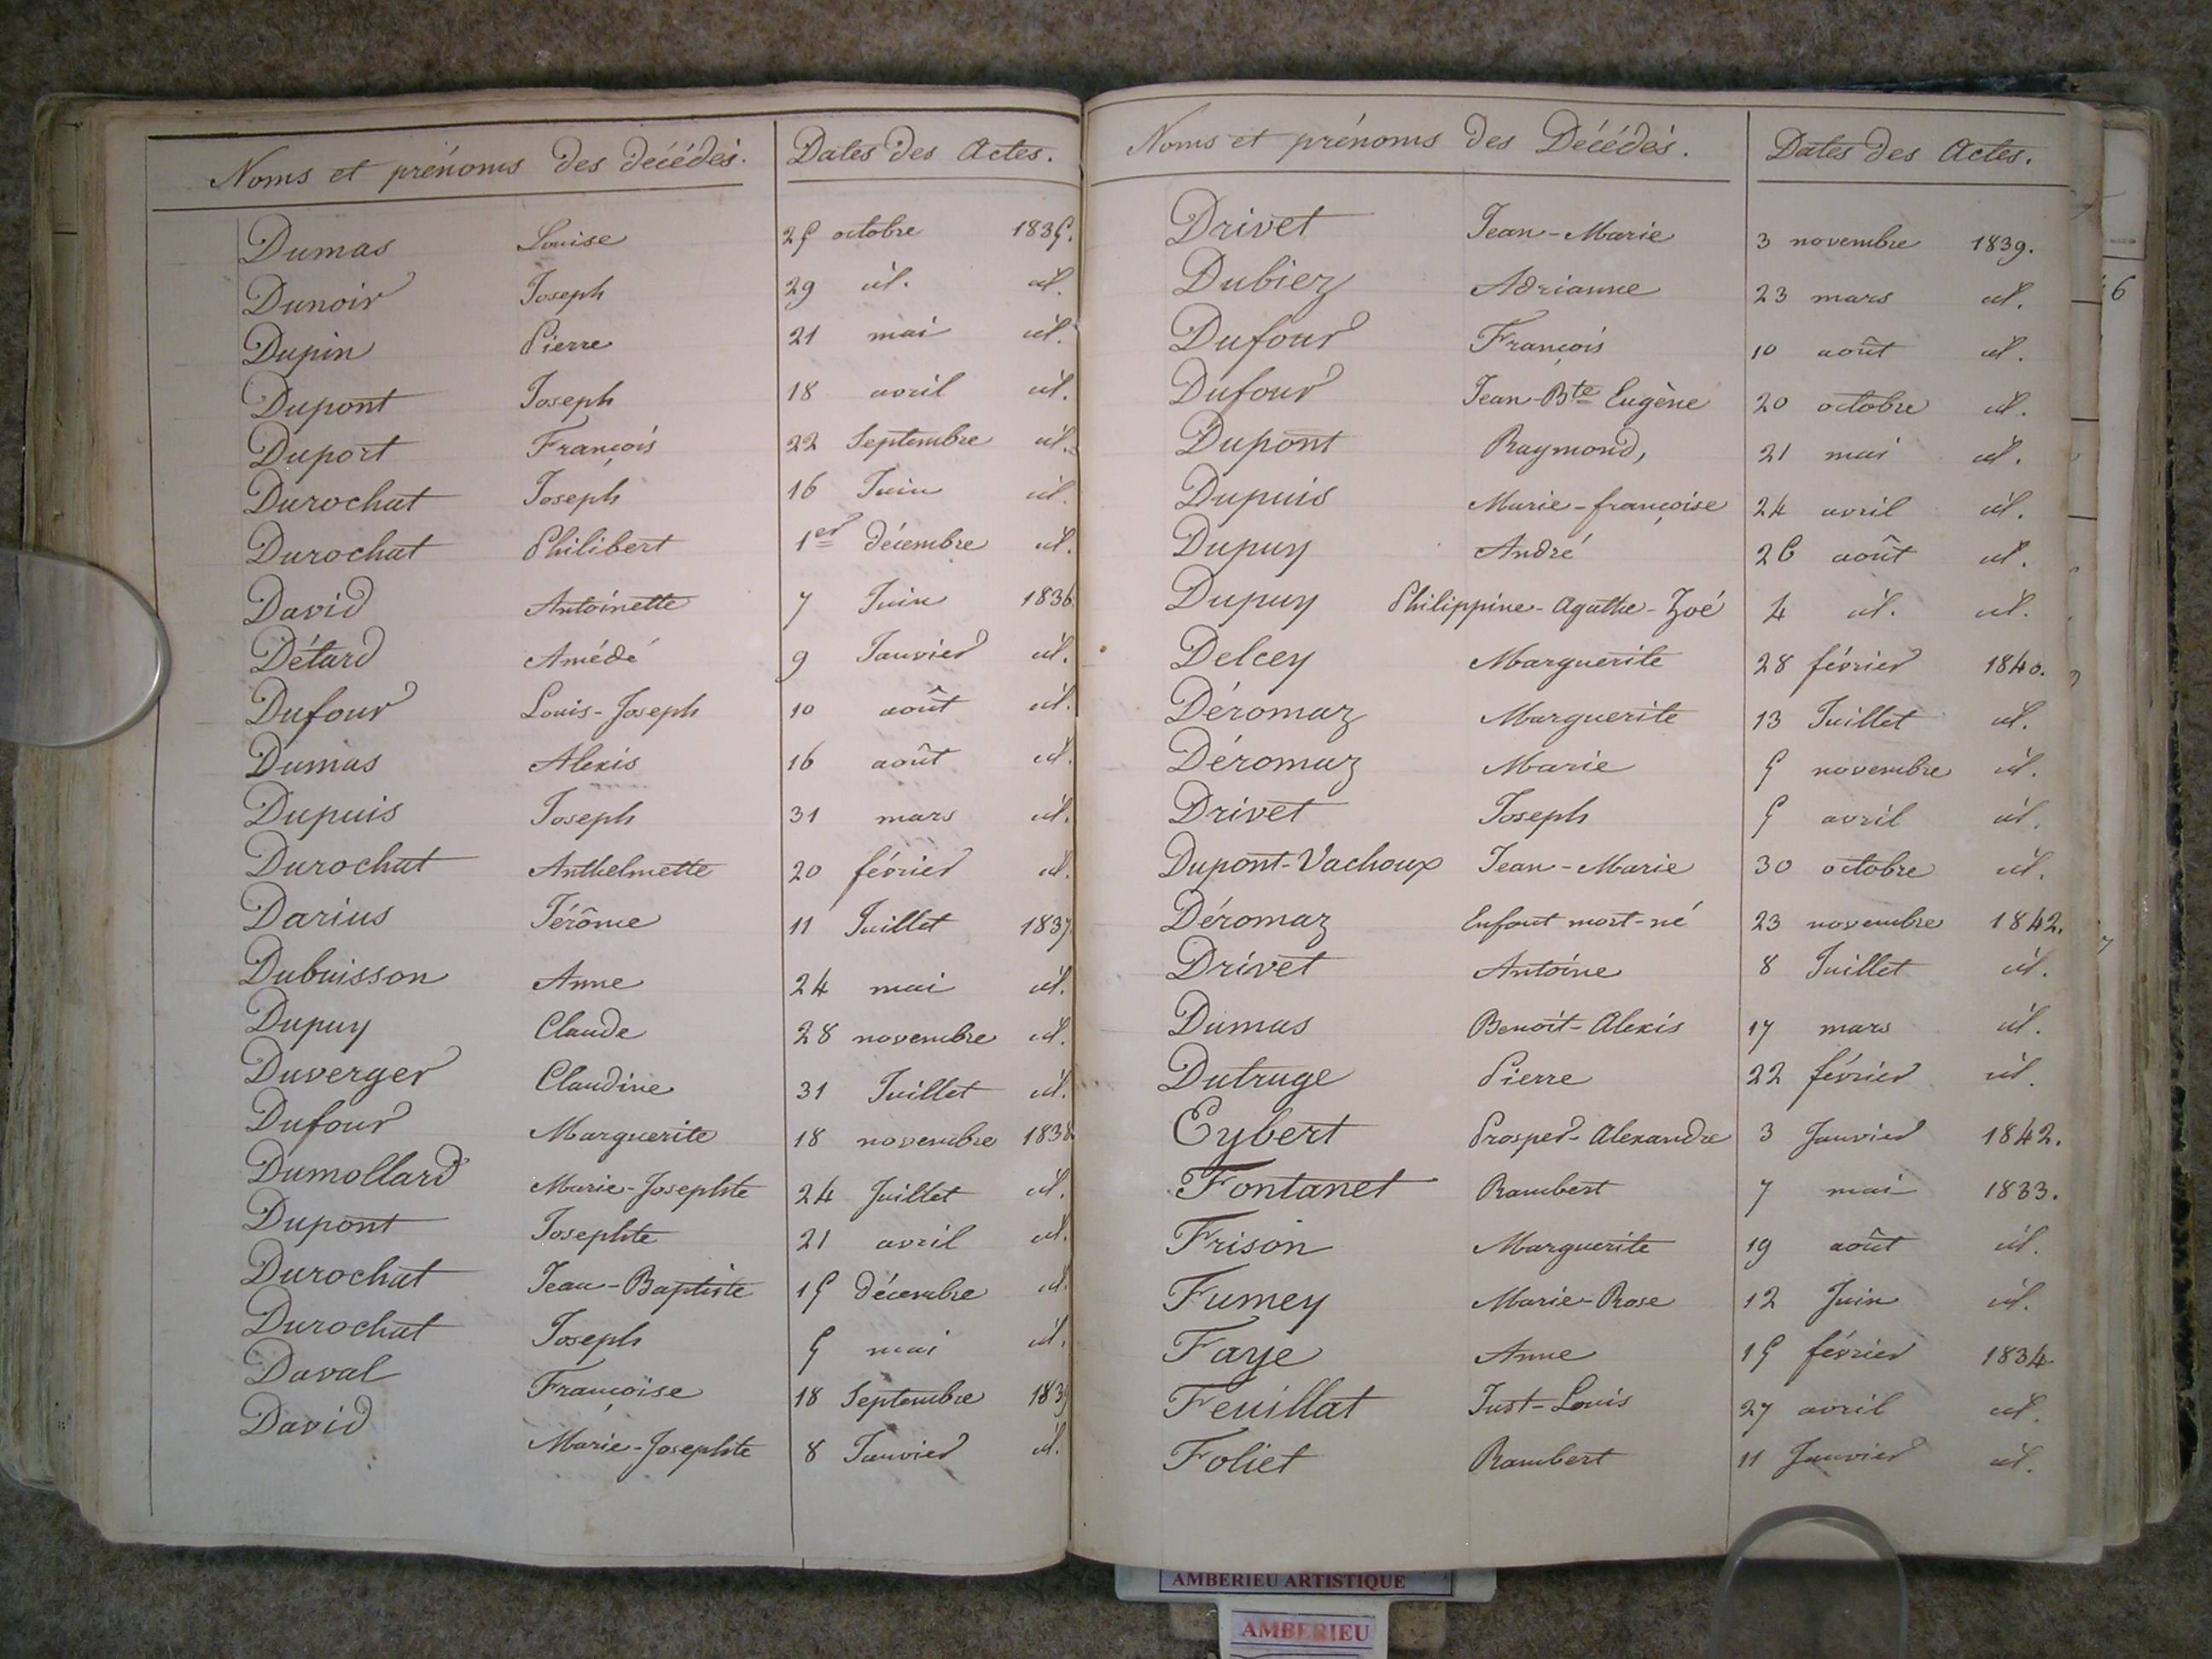 Noms et prénoms des décédés. Dates des Actes.
Dumas Louise 25 octobre 1835.
Dunoir Joseph 29 id. id.
Dupin Pierre 21 mai id.
Dupont Joseph 18 avril id.
Duport François 22 Septembre id.
Durochat Joseph 16 Juin id.
Durochat Philibert 1er décembre id.
David Antoinette 7 Juin 1836.
Détard Amédé 9 Janvier id.
Dufour Louis-Joseph 10 août id.
Dumas Alexis 16 août id.
Dupuis Joseph 31 mars id.
Durochat Anthelmette 20 février id.
Darius Jérôme 11 Juillet 1837
Dubuisson Anne 24 mai id.
Dupuy Claude 28 novembre id.
Duverger Claudine 31 Juillet id.
Dufour Marguerite 18 novembre 1838
Dumollard Marie-Josephte 24 Juillet id.
Dupont Josephte 21 avril id.
Durochat Jean-Baptiste 15 décembre id.
Durochat Joseph 5 mai id.
Daval Françoise 18 Septembre
David Marie-Josephte 8 Janvier id.
Noms et prénoms des Décédés. Dates des Actes.
Drivet Jean-Marie 3 novembre 1839.
Dubiez Adrianne 23 mars id.
Dufour François 10 août id.
Dufour Jean-Bte Eugène 20 octobre id.
Dupont Raymond, 21 mai id.
Dupuis Marie-françoise 24 avril id.
Dupuy André 26 août id.
Dupuy Philippine-Agathe-Zoé 4 id. id.
Delcey Marguerite 28 février 1840.
Déromaz Marguerite 13 Juillet id.
Déromaz Marie 5 novembre id.
Drivet Joseph 5 avril id.
Dupont-Vachoux Jean-Marie 30 octobre id.
Déromaz Enfant mort-né 23 novembre 1842.
Drivet Antoine 8 Juillet id.
Dumas Benoit-Alexis 17 mars id.
Dutruge Pierre 22 février id.
Eybert Prosper-Alexandre 3 Janvier 1842.
Fontanet Rambert 7 mai 1833.
Frison Marguerite 19 août id.
Fumey Marie-Rose 12 Juin id.
Faye Anne 15 février 1834.
Feuillat Just-Louis 27 avril id.
Foliet Rambert 11 Janvier id.
6
AMBERIEU ARTISTIQUE
AMBERIEU